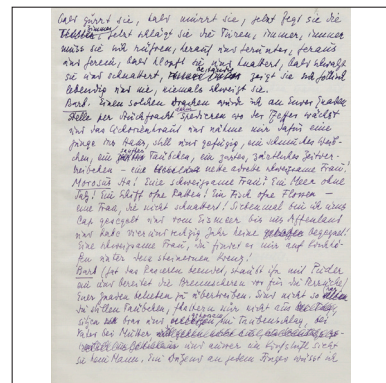 bald girrt sie, bald murrt sie, jetzt fegt sie die
Zimmer, jetzt schlägt sie die Türen, immer, immer
muss sie sich rühren, herauf und herunter, heraus
und herein, bald klopft sie und hadert, bald
sie und schnattert, zeigt sie sich
lebendig und nie, niemals schweigt sie.
Barb. Einen solchen Drachen würde ich an Euer Gnaden
Stelle per Eilfracht spedieren wo der Pfeffer wächst
und das und nähme mir dafür eine
junge ins Haus, still und gefügig, ein schmuckes Weib-
chen, ein sanftes Täubchen, ein zartes, zärtliches Zeitver-
treibchen – eine nette adrette schweigsame Frau!
Morosus Ha! Eine schweigsame Frau? Ein Meer ohne
Salz! Ein Schiff ohne Ruder! Ein Fisch ohne Flossen –
eine Frau, die nicht schnattert! Siebenmal bin ich ums
Cap gesegelt und vom Eismeer bis ins Affenland
und habe vierundsechzig Jahr keine begegnet!
Eine schweigsame Frau, Du findest es nur auf Kirchhö-
fen unter dem steinernen Kreuz!
Barb (hat das Rasieren beendet, stäubt ihn mit Puder
und nun bereitet die Brennscheren vor für die Perücke)
Euer Gnaden belieben zu übertreiben. Sind nicht so
die stillen Täubchen, flattern nur nicht aus
sitzen brav und im Taubenschlag, bei
Küss bei Mutter
und nur ein Kopfschiff sucht
sie dem Mann. Ein Dutzend an jedem Finger wüsst ich